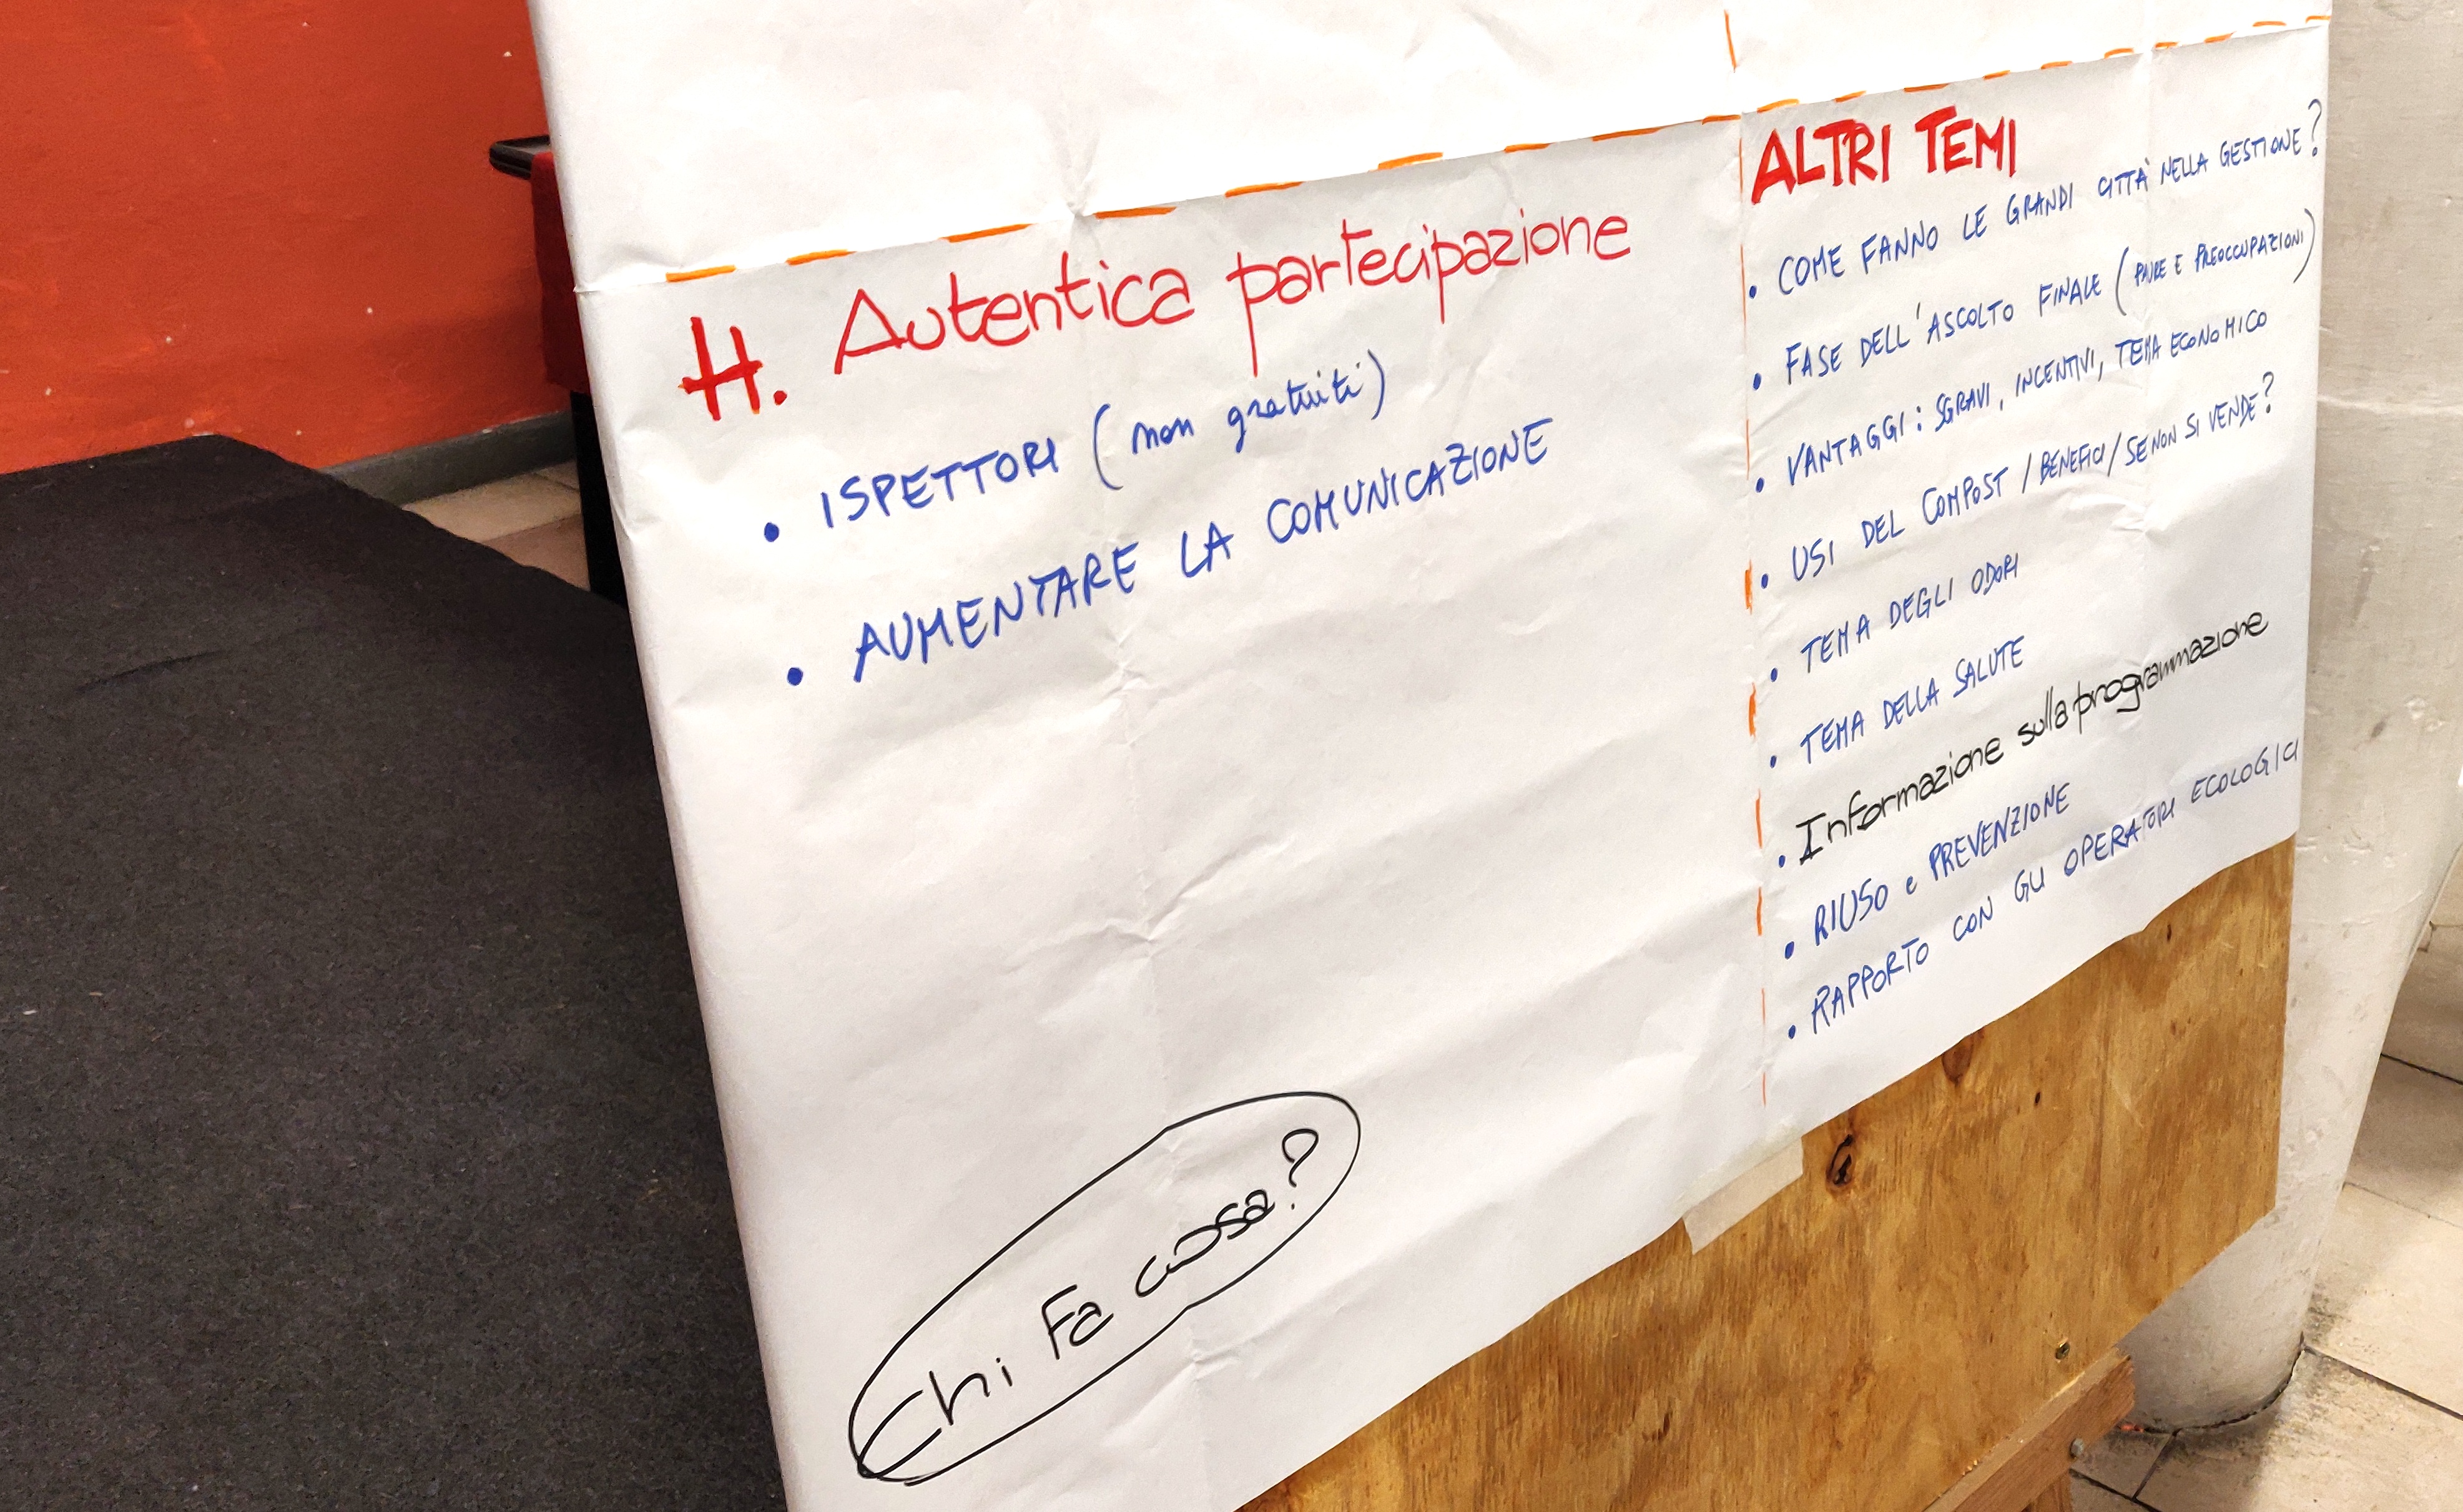 H. Autentica partecipazione
• ISPETTORI (non gratuiti)
• AUMENTARE LA COMUNICAZIONE
Chi Fa cosa?
ALTRI TEMI
• COME FANNO LE GRANDI CITTÀ NELLA GESTIONE?
• FASE DELL'ASCOLTO FINALE (PAURE E PREOCCUPAZIONI)
• VANTAGGI: SGRAVI, INCENTIVI, TEMA ECONOMICO
• USI DEL COMPOST / BENEFICI / SE NON SI VENDE?
• TEMA DEGLI ODORI
• TEMA DELLA SALUTE
• Informazione sulla programmazione
• RIUSO e PREVENZIONE
• RAPPORTO CON GLI OPERATORI ECOLOGICI